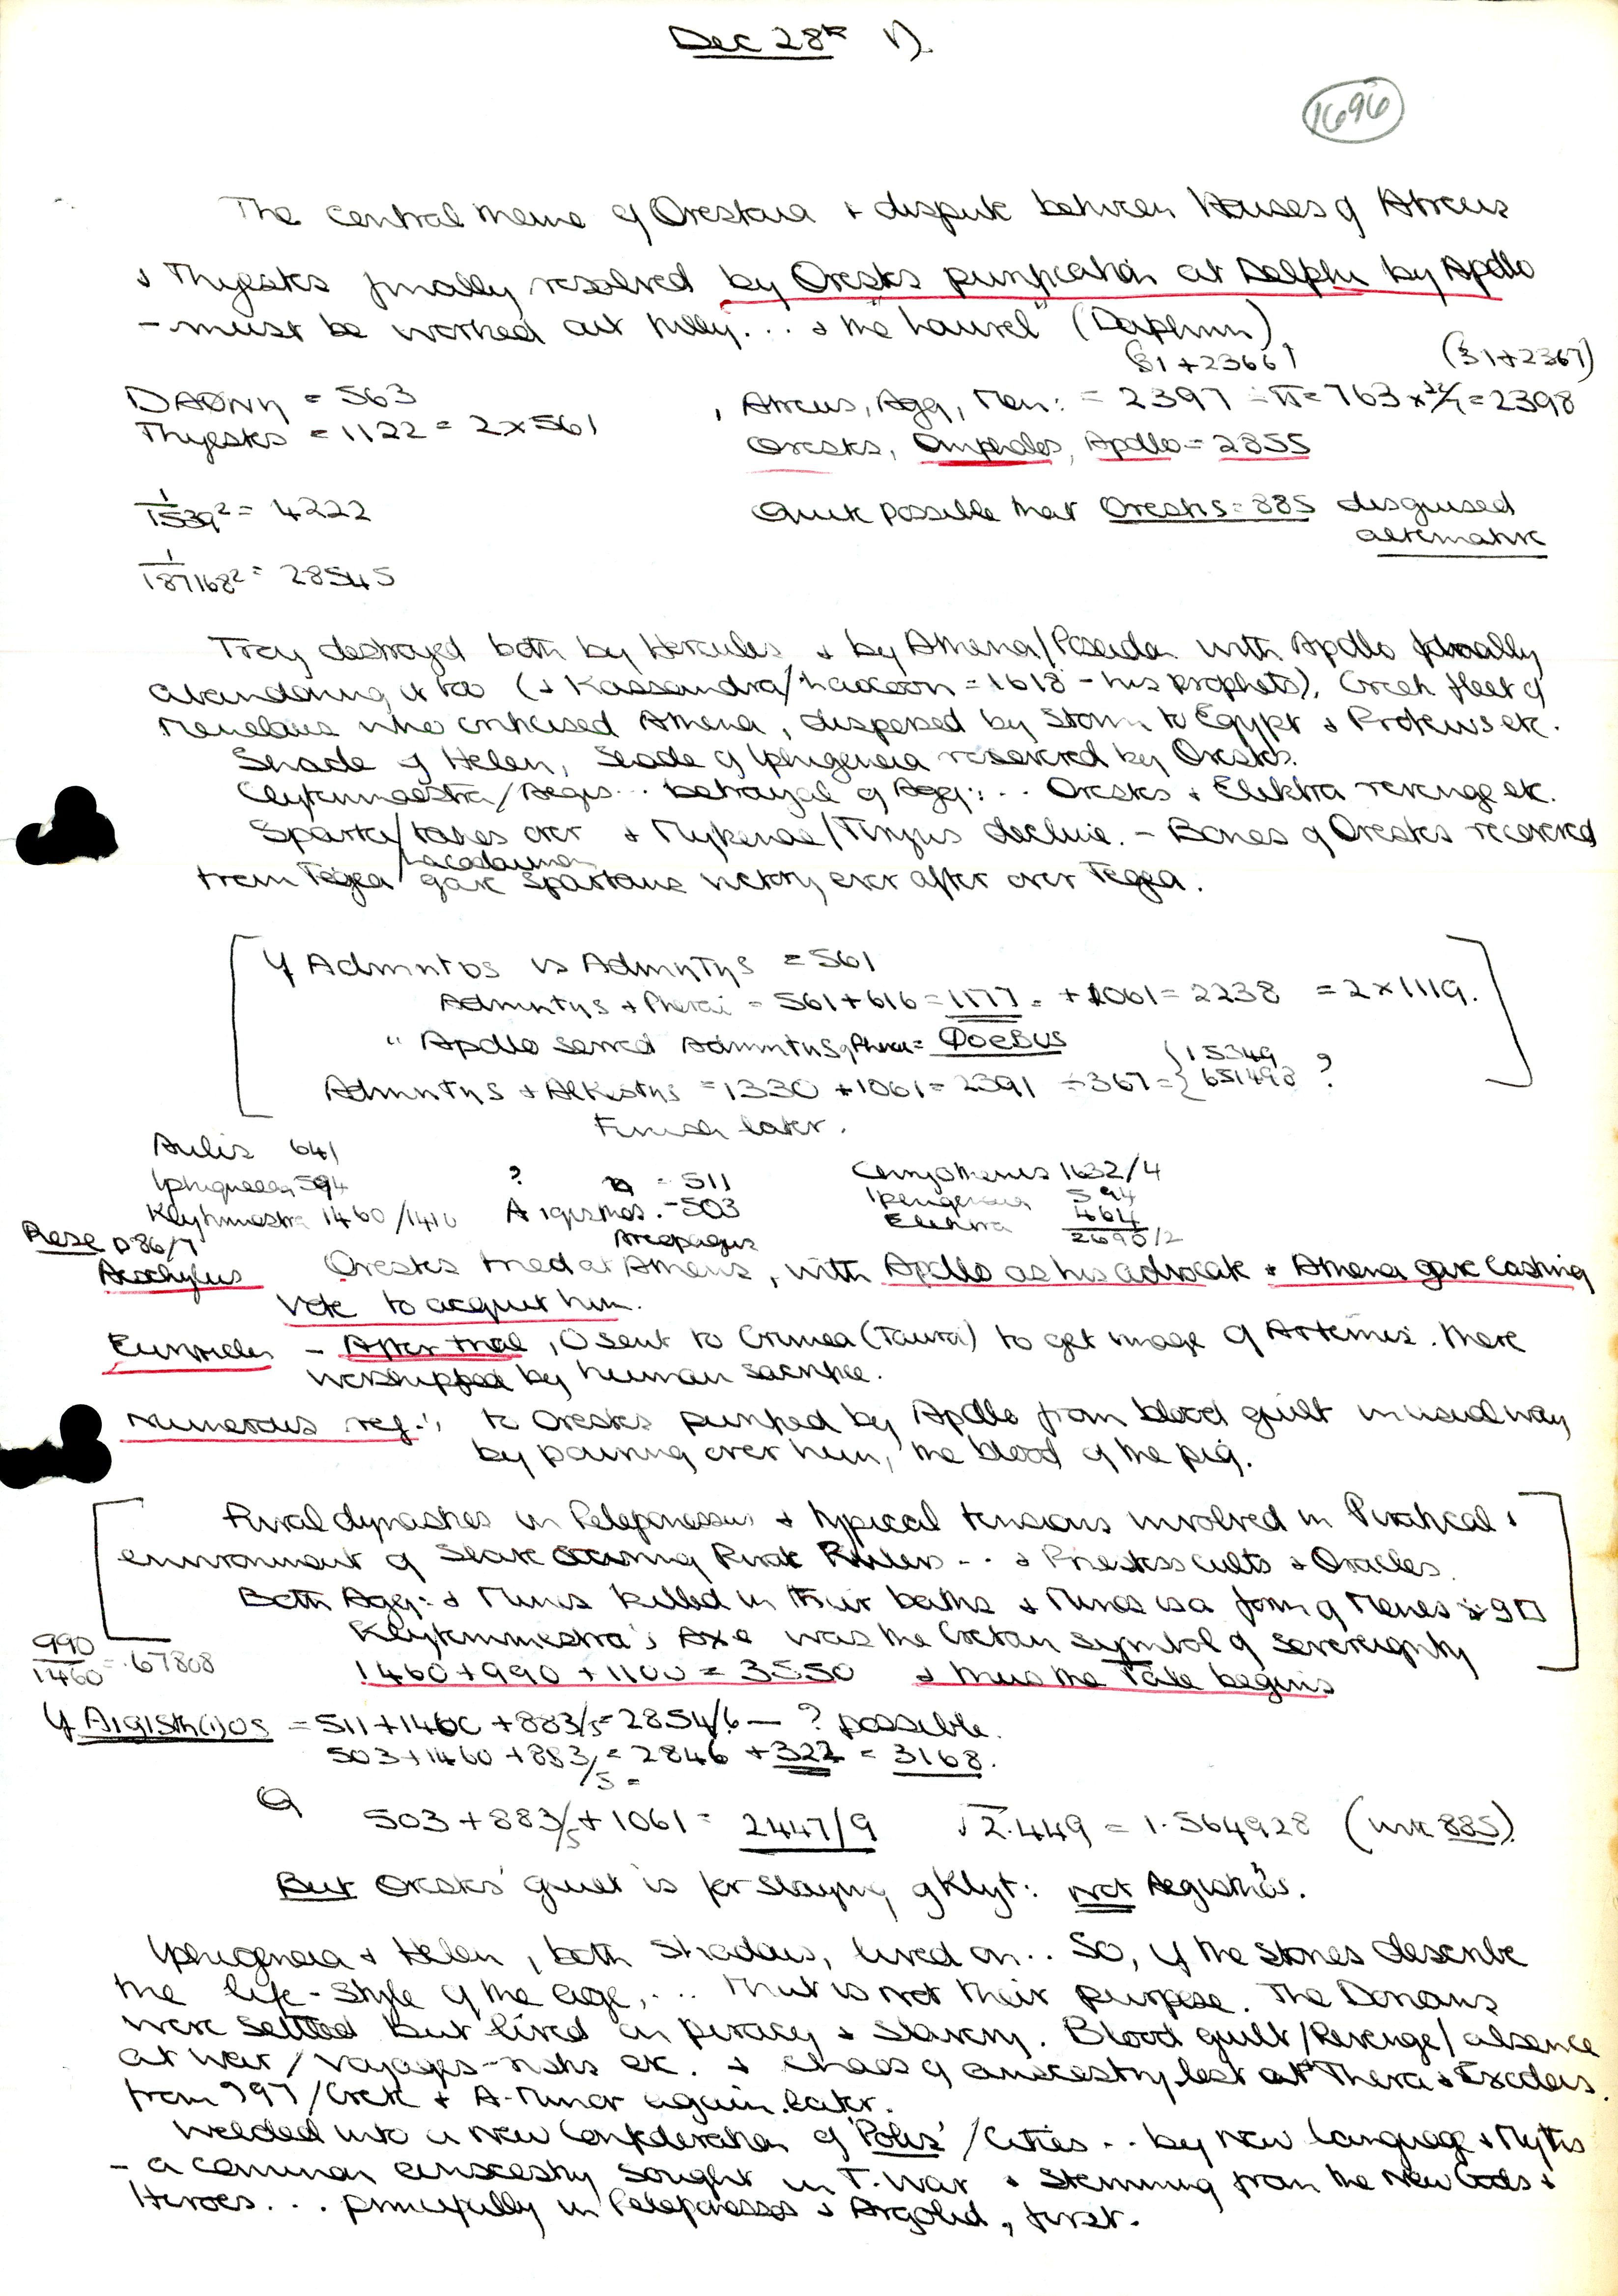 Dec 28th 1).
1696
The central theme of Orestaia & dispute between Houses of Atreus
& Thyestes finally resolved by Orestes purification at Delphi by Apollo
- must be worked out fully... & the "Laurel" (Daphnn)
(31+2366) (31+2367)
DAØNη = 563
Thyestes = 1122 = 2x561
, Atreus, Agg, Men: = 2397 ÷π= 763 x 22/7 = 2398
Orestes, Omphalos, Apollo = 2855
1/1539² = 4222
Quite possible that Orestis = 885 disguised
alternative
1/187168² = 28545
Troy destroyed both by Hercules & by Athena/Poseidon with Apollo finally
abandoning it too (& Kassandra/Laocoon = 1618 - his prophets), Greek fleet of
Menelaus who criticised Athena, dispersed by Storm to Egypt & Proteus etc.
Shade of Helen, Shade of Iphigeneia rescued by Orestes.
Clytemnaestra/Aegis.. betrayal of Agg:.. Orestes & Elektra revenge etc.
Sparta/takes over & Mykenae/Tiryns decline. - Bones of Orestes recovered
/Lacadaimon
from Tegea gave Spartans victory ever after over Tegea.
If Admntos is AdmηTys = 561
Admηtys & Pherai = 561+616 = 1177. +1061 = 2238 = 2x1119.
" Apollo served Admηtys of Pherai = ΦOEBUS
Admηtys & Alkestys = 1330 +1061 = 2391 ÷367 = { 15349
651498 ?
Finish later.
Aulis 641
Iphigneia 594
Klytmnestra 1460/1410
? = 511
Aigisthos. - 503
Areopagus
Chrysothemis 1632/4
Iphigeneia 594
Elektra 464
2690/2
Rose p86/7
Aeschylus Orestes tried at Athens, with Apollo as his advocate & Athena gave casting
vote to acquit him.
Euripides - After trial, O sent to Crimea (Tauri) to get image of Artemis. there
worshipped by human sacrifice.
Numerous ref:s to Orestes purified by Apollo from blood guilt in usual way
by pouring over him, the blood of the pig.
Rival dynasties in Peleponessus & typical tensions involved in Piratical &
environment of Slave owning Pirate Rulers .. & Priestess cults & Oracles.
Both Agg: & Minos killed in their baths & Minos is a form of Menes
Klytemmestra's Axe was the Cretan symbol of sovereignty
990/1460 = .67808
1460+990+1100 = 3550 & thus the Tale begins
If AIGISth(i)OS = 511+1460+883/5 = 2854/6 — ? possible.
503+1460+883/5 = 2846 +322 = 3168.
503+883/5+1061 = 2447/9 √2.449 = 1.564928 (inv 885).
But Orestes' guilt is for slaying of Klyt: not Aegisthus.
Iphigeneia & Helen, both Shadows, lived on.. So, if the stories describe
the life-style of the age,... that is not their purpose. The Dorians
were settled but lived on piracy & Slavery. Blood guilt/Revenge/absence
at war/voyages-risks etc. & chaos of anscestry lost at Thera & Exodus.
from ?9?/Crete & A-Minor again later.
Welded into a new Confederation of 'Polis'/Cities .. by new language & Myths
- a common anscestry sought in T. War & stemming from the New Gods &
Heroes... principally in Peleponessos & Argolid, first.